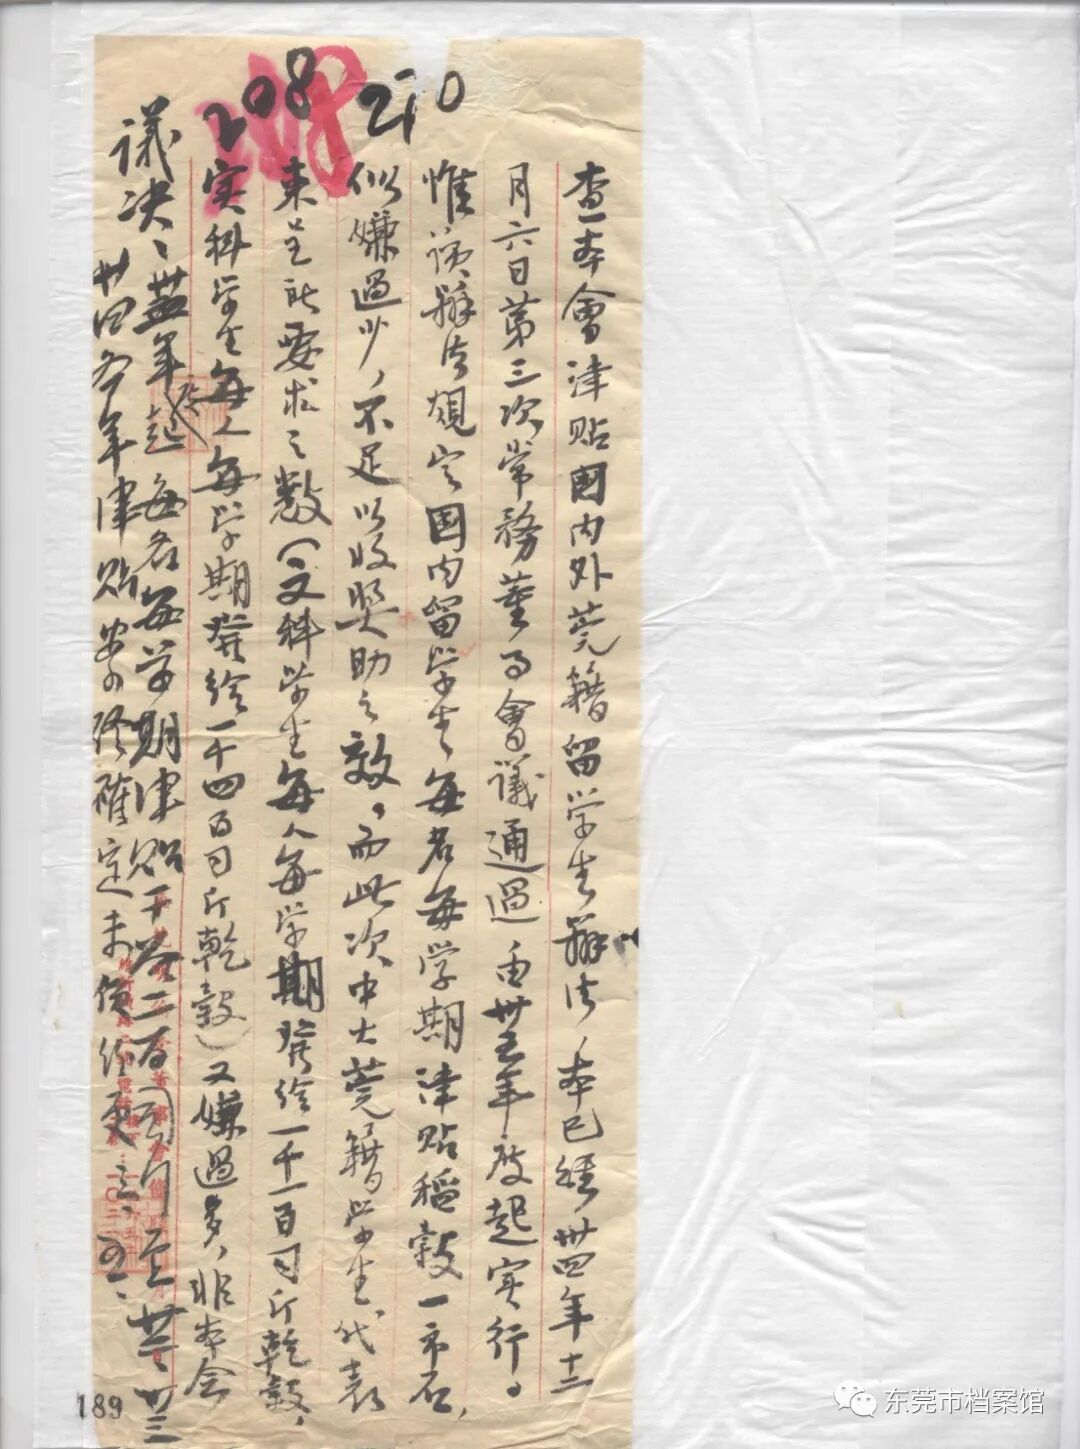 208
210
查本會津貼國内外莞籍留学生辦法,本已經卅四年十二
月六日第三次常務董事會議通過由卅五年度起实行。
惟該辦法規定国内留学生每名每学期津貼稻穀一市石,
似嫌過少,不足以收奨助之效,而此次中大莞籍学生代表
来呈所要求之數(文科学生每人每学期発给一千一百司斤乾穀,
实科学生每人每学期発给一千四百司斤乾穀)又嫌過多,非本会
議决、年起每名每学期津貼干谷二百司斤 卅三
卅四各年津貼 確定 价
189
东莞市档案馆